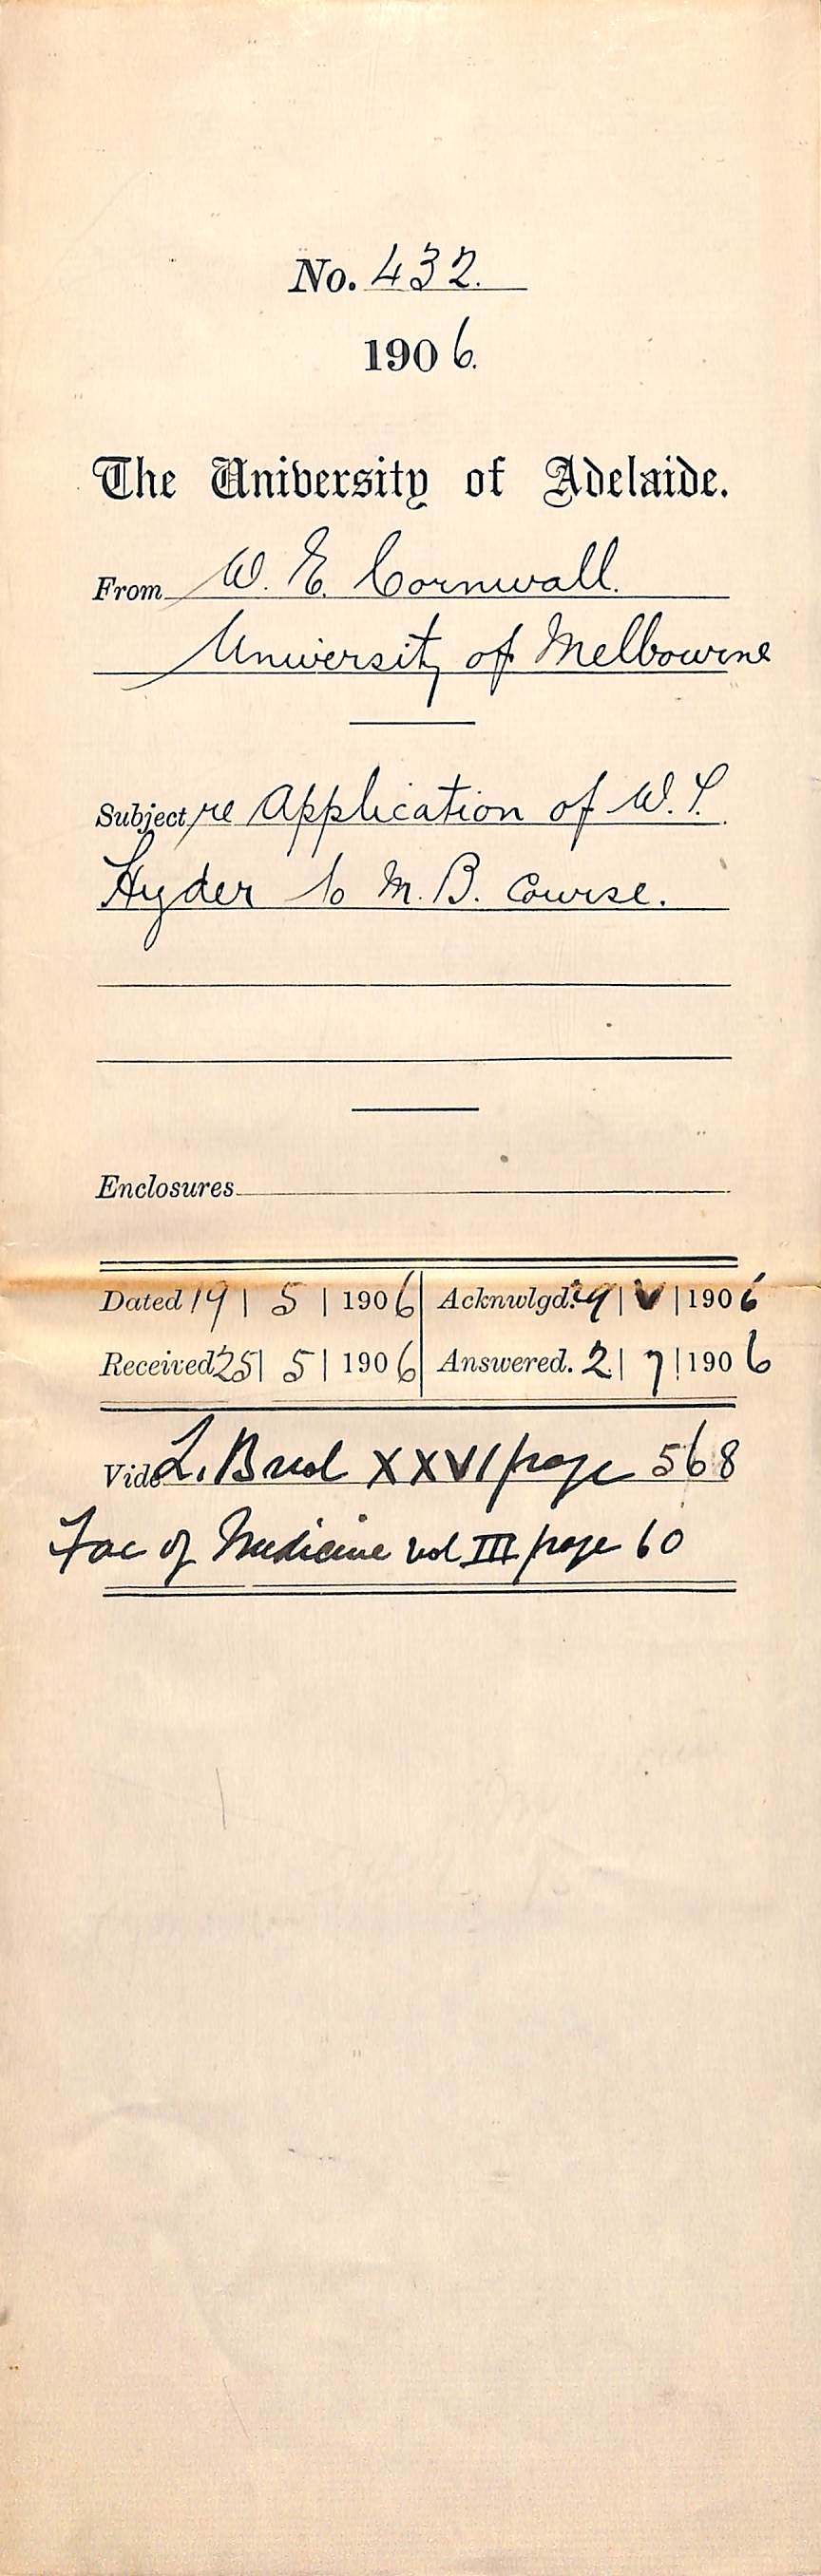 No. 432.
1906.
The University of Adelaide.
From W. E. Cornwall.
University of Melbourne
Subject re Application of W. L.
Hyder to M. B. Course.
Enclosures
Dated 19 | 5 | 1906 Acknwlgd. 29 | V | 1906
Received 25 | 5 | 1906 Answered. 2 | 7 | 1906
Vide L. Book XXVI page 568
Fac of Medicine vol III page 60